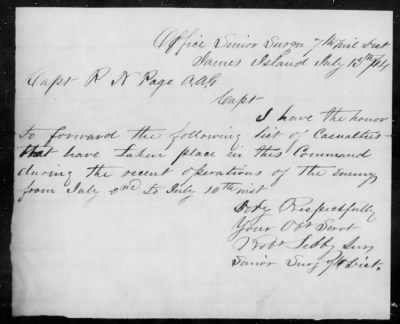 Office Senior Surgn 7th Mil Dist
James Island July 13th /64
Capt R N Page A.A.G
Capt
I have the honor
to forward the following list of Casualties
that have taken place in this Command
during the recent operations of the Enemy
from July 2nd to July 10th inst
Very Respectfully
Your Obt Servt
Robt Lebby Surg
Senior Surg 7th Dist.